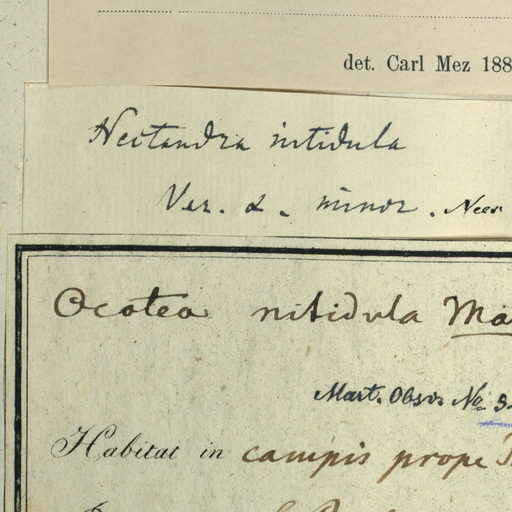 det. Carl Mez 188
Nectandra nitidula
Var. α. minor. Nees
Ocotea nitidula Ma
Mart. Obsv. No.
Habitat in campis prope